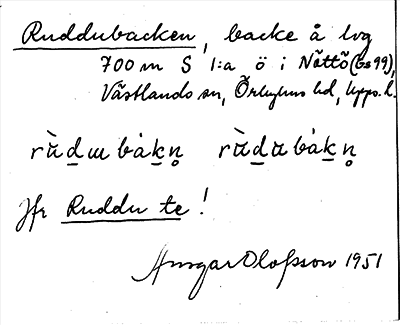 Ruddubacken, backe å lvg
700 m S l:a ö i Nöttö (bs 99),
Västlands sn, Örbyhus hd, Upps. l.
rùd̲ɯ bàk̲n̥ rùd̲ɑ bàk̲n̥
Jfr Ruddu te!
Ansgar Olofsson 1951